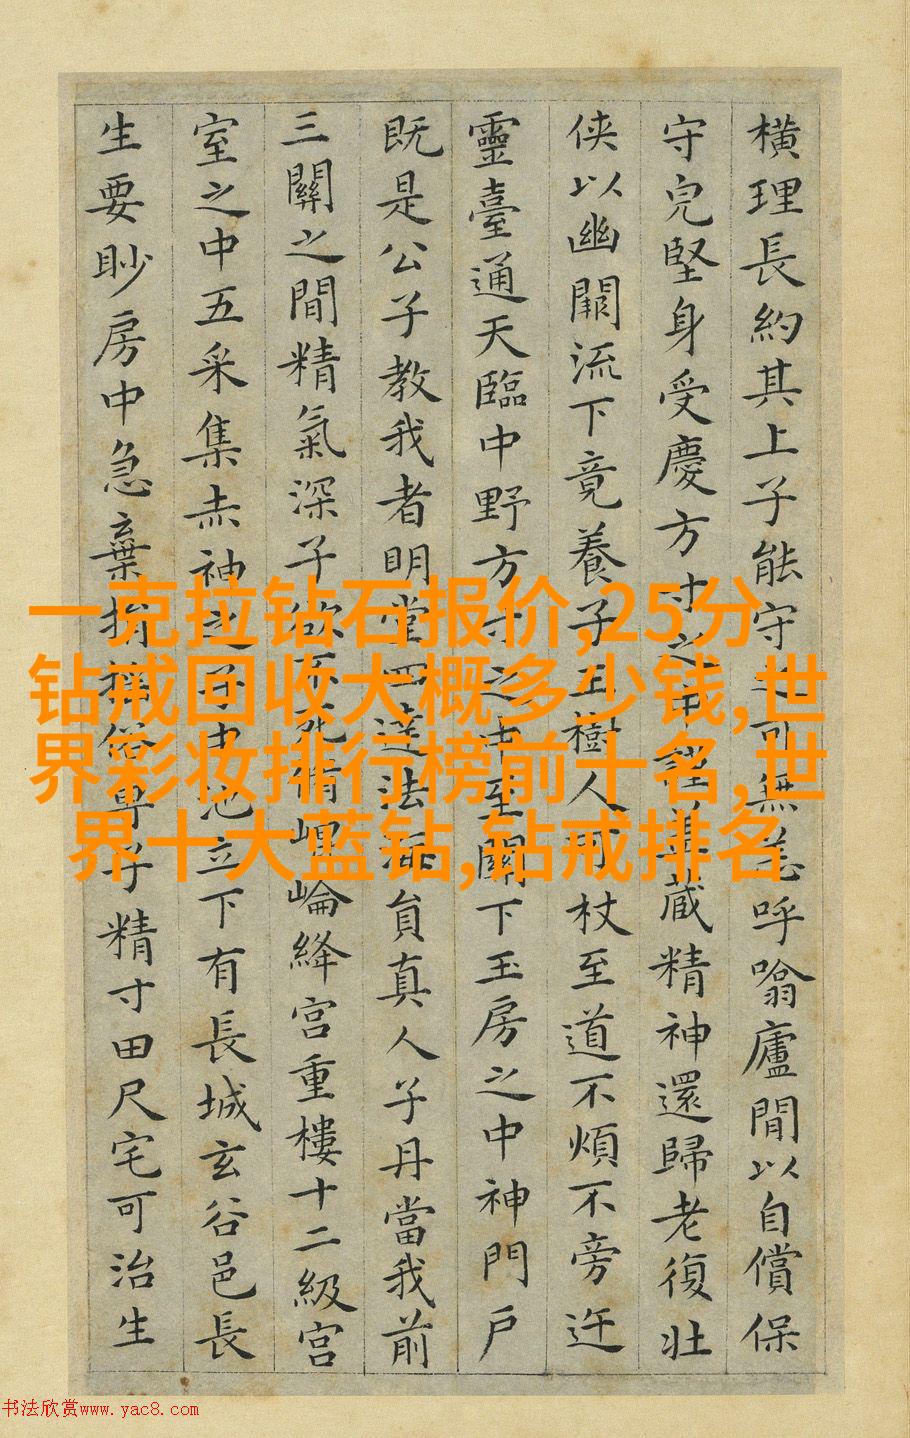 橫理長約其上子能守之可無恙呼噏廬間以自償保
守皃堅身受慶方寸之中謹蓋藏精神還歸老復壯
俠以幽闕流下竟養子玉樹人可杖至道不煩不旁迕
靈臺通天臨中野方寸之中至關下玉房之中神門戶
既是公子教我者明堂四達法海員真人子丹當我前
三關之間精氣深子欲不死脩崐崘絳宮重樓十二級宮
室之中五采集赤神之子中池立下有長城玄谷邑長
生要眇房中急棄捐俗專子精寸田尺宅可治生
一克拉钻石报价,25分
钻戒回收大概多少钱,世
界彩妆排行榜前十名,世
界十大蓝钻,钻戒排名
书法欣赏www.yac8.com